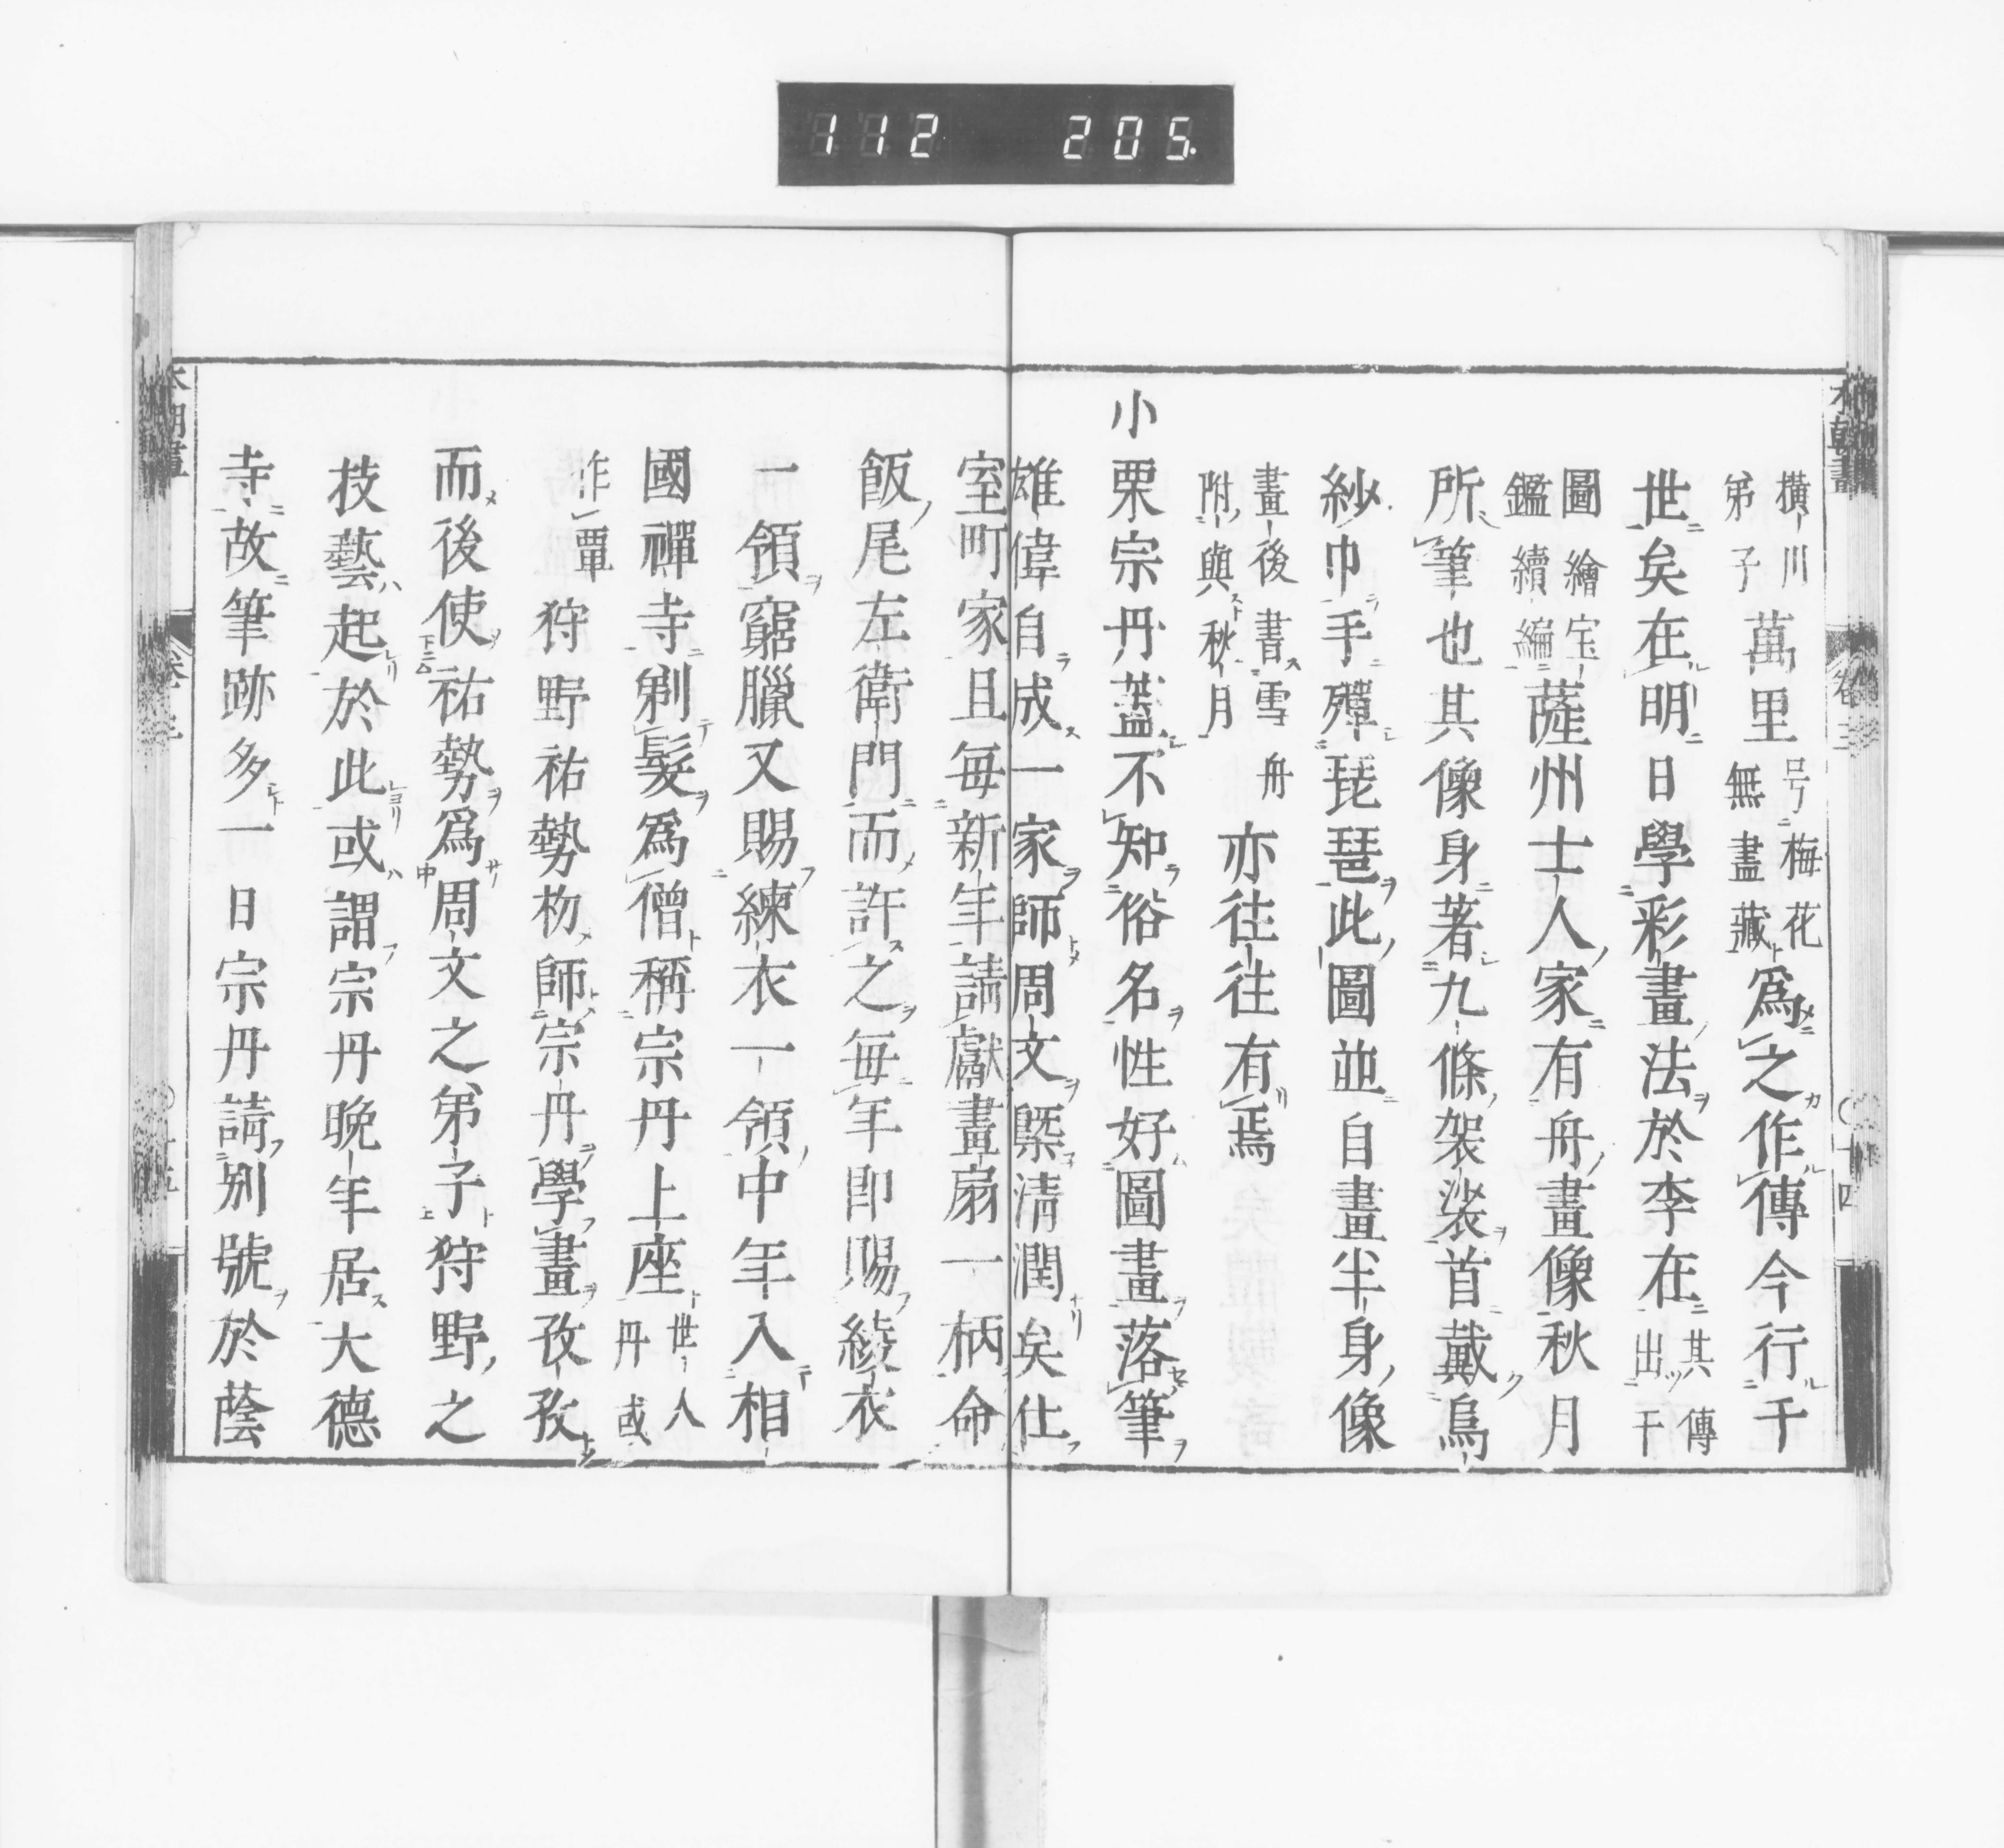 112 205.
横川萬里号梅花
弟子無盡藏爲之作傳今行于
世矣在明日學彩畫法於李在其傳出于
圖繪宝鑑續編薩州士人家有舟畫像秋月
所筆也其像身著九條袈裟首戴烏
紗巾手殫琵琶此圖並自畫半身像
畫後書雪舟附與秋月亦往往有焉
小栗宗丹蓋不知俗名性好圖畫落筆
雄偉自成一家師周文槩清潤矣仕
室町家且毎新年請獻畫扇一柄命
飯尾左衛門而許之毎年即賜綾衣
一領窮臘又賜練衣一領中年入相
國禪寺剃髮爲僧稱宗丹上座世人丹或
作覃狩野祐勢初師宗丹學畫孜孜
而後使祐勢爲周文之弟子狩野之
技藝起於此或謂宗丹晩年居大德
寺故筆跡多一日宗丹請別號於蔭
本朝畫
卷三
十四